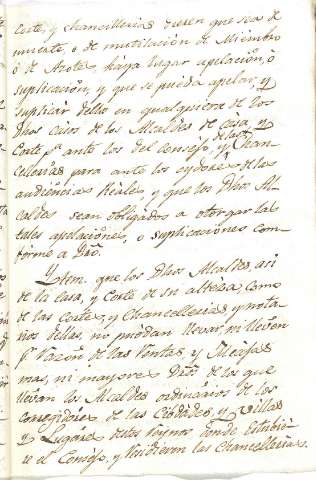 Corte, y chancillerias dieren que sea de
muerte, o de mutilación de Miembro
ò de Azotes, haya lugar apelacion, ò
suplicación, y que se pueda apelar, y
suplicar dello en qualquiera de los
dhos casos de los Alcaldes de Casa, y
Corte pª ante los del Consejo, de las Chan-
cellerias para ante los oydores de las
audiencias Reales, y que los Dhos Al-
caldes sean obligados a otorgar las
tales apelaciones, o suplicaciones con-
forme a Dro.
Ytem. que los Dhos Alcaldes, asi
de la Casa, y Corte de su alteza como
de las Cortes, y Chancellerias y nota-
rios dellas, no puedan llevar, ni lleven
pr razon de las Ventas, y
mas, ni mayores Dros de los que
llevan los Alcaldes ordinarios de los
corregidores de las Ciudades, y Villas
y Lugares destos Reynos donde estubie-
re el Consejo, y residieren las Chancellerias.